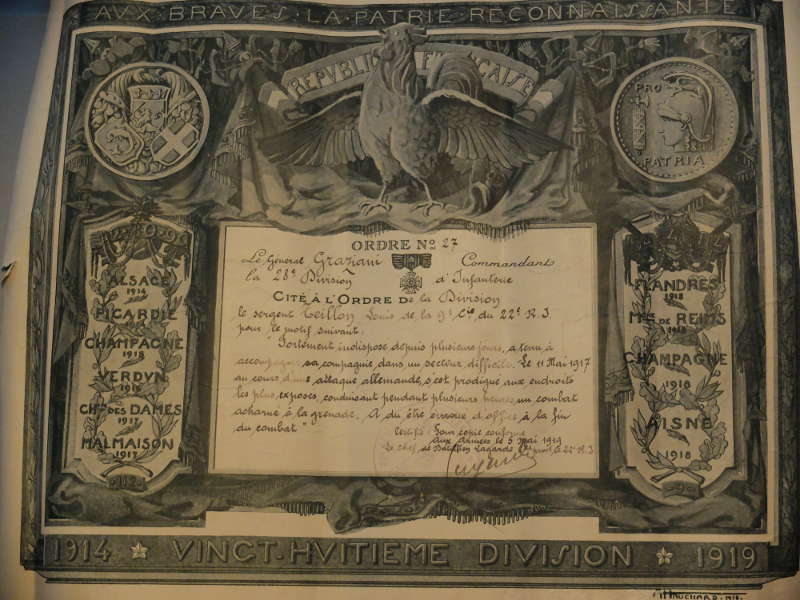 AVX·BRAVES·LA·PATRIE·RECONNAISSANTE
REPVBLIQVE FRANÇAISE
PRO
PATRIA
ORDRE No 27
Le Général Graziani Commandant
la 28e Division d'Infanterie
CITÉ À L'ORDRE De la Division
le sergent Teillon Louis de la 9e Cie du 22e R.I
pour le motif suivant.
Fortement indisposé depuis plusieurs jours, a tenu à
accompagner sa compagnie dans un secteur difficile. Le 11 Mai 1917
au cours d'une attaque allemande, s'est prodigué aux endroits
les plus exposés, conduisant pendant plusieurs heures un combat
acharné à la grenade. A du être évacué d'office à la fin
du combat"
Certifié Pour copie conforme
Aux Armées le 5 Mai 1919
Le chef de Bataillon Lagarde le 22e R.I
ALSACE
1914
PICARDIE
1914
CHAMPAGNE
VERDVN
1916
CHin DES DAMES
1917
MALMAISON
1917
FLANDRES
1918
Mts DE REIMS
1918
CHAMPAGNE
1918
AISNE
1918
1914 VINGT·HVITIEME DIVISION 1919